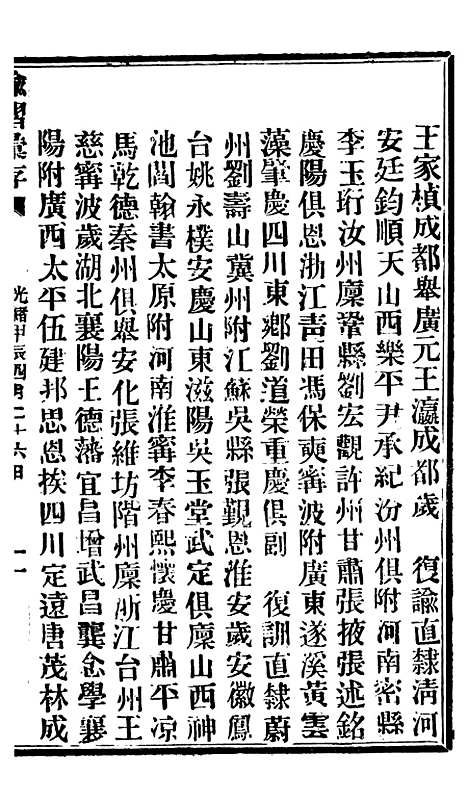 王家楨成都舉廣元王瀛成都歲　復諭直隸淸河
安廷鈞順天山西樂平尹承紀汾州俱附河南密縣
李玉珩汝州廩鞏縣劉宏觀許州甘肅張掖張述銘
慶陽俱恩浙江靑田馮保奭甯波附廣東遂溪黃雲
藻肇慶四川東鄉劉道榮重慶俱副　復訓直隸蔚
州劉壽山冀州附江蘇吳縣張觀恩淮安歲安徽鳳
台姚永樸安慶山東滋陽吳玉堂武定俱廩山西神
池閻翰書太原附河南淮甯李春熙懷慶甘肅平凉
馬乾德秦州俱舉安化張維坊階州廩浙江台州王
慈甯波歲湖北襄陽王德藩宜昌增武昌龔念學襄
陽附廣西太平伍建邦思恩挨四川定遠唐茂林成
諭摺彙存
光緒甲辰四月二十六日
十一